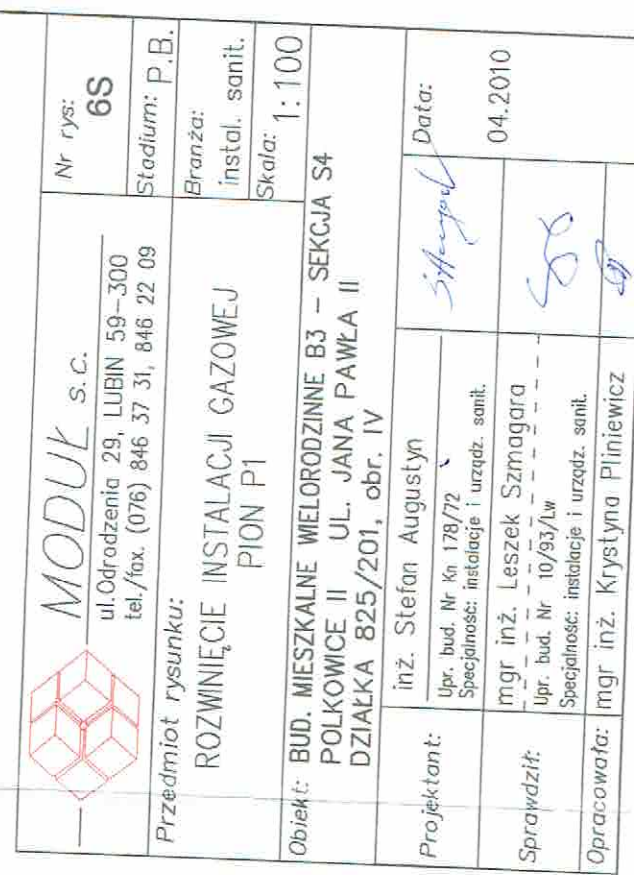 MODUŁ s.c.
ul.Odrodzenia 29, LUBIN 59-300
tel./fax. (076) 846 37 31, 846 22 09
Nr rys:
6S
Stadium: P.B.
Przedmiot rysunku:
ROZWINIĘCIE INSTALACJI GAZOWEJ
PION P1
Branża:
instal. sanit.
Skala: 1:100
Obiekt: BUD. MIESZKALNE WIELORODZINNE B3 – SEKCJA S4
POLKOWICE II UL. JANA PAWŁA II
DZIAŁKA 825/201, obr. IV
Projektant:
inż. Stefan Augustyn
Upr. bud. Nr Kn 178/72
Specjalność: instalacje i urządz. sanit.
Data:
04.2010
Sprawdził:
mgr inż. Leszek Szmagara
Upr. bud. Nr 10/93/Lw
Specjalność: instalacje i urządz. sanit.
Opracowała: mgr inż. Krystyna Pliniewicz